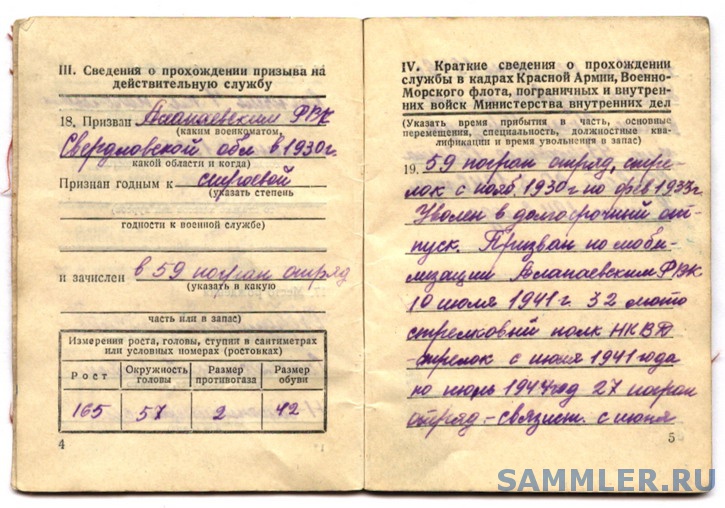 III. Сведения о прохождении призыва на
действительную службу
18. Призван Алапаевским РВК
(каким военкоматом,
Свердловской обл в 1930г.
какой области и когда)
Признан годным к строевой
(указать степень
годности к военной службе)
и зачислен в 59 погран отряд
(указать в какую
часть или в запас)
Измерения роста, головы, ступни в сантиметрах
или условных номерах (ростовках)
Рост Окружность головы Размер противогаза Размер обуви
165 57 2 42
4
IV. Краткие сведения о прохождении
службы в кадрах Красной Армии, Военно-
Морского флота, пограничных и внутрен-
них войск Министерства внутренних дел
(Указать время прибытия в часть, основные
перемещения, специальность, должностные ква-
лификации и время увольнения в запас)
19. 59 погран отряд, стре-
лок с нояб. 1930г по фев 1933г
Уволен в долгосрочный от-
пуск. Призван по моби-
лизации Алапаевским РВК
10 июля 1941 г. 32 мото
стрелковый полк НКВД
стрелок с июля 1941 года
по июль 1944год 27 погран
отряд - связист. с июня
5
SAMMLER.RU